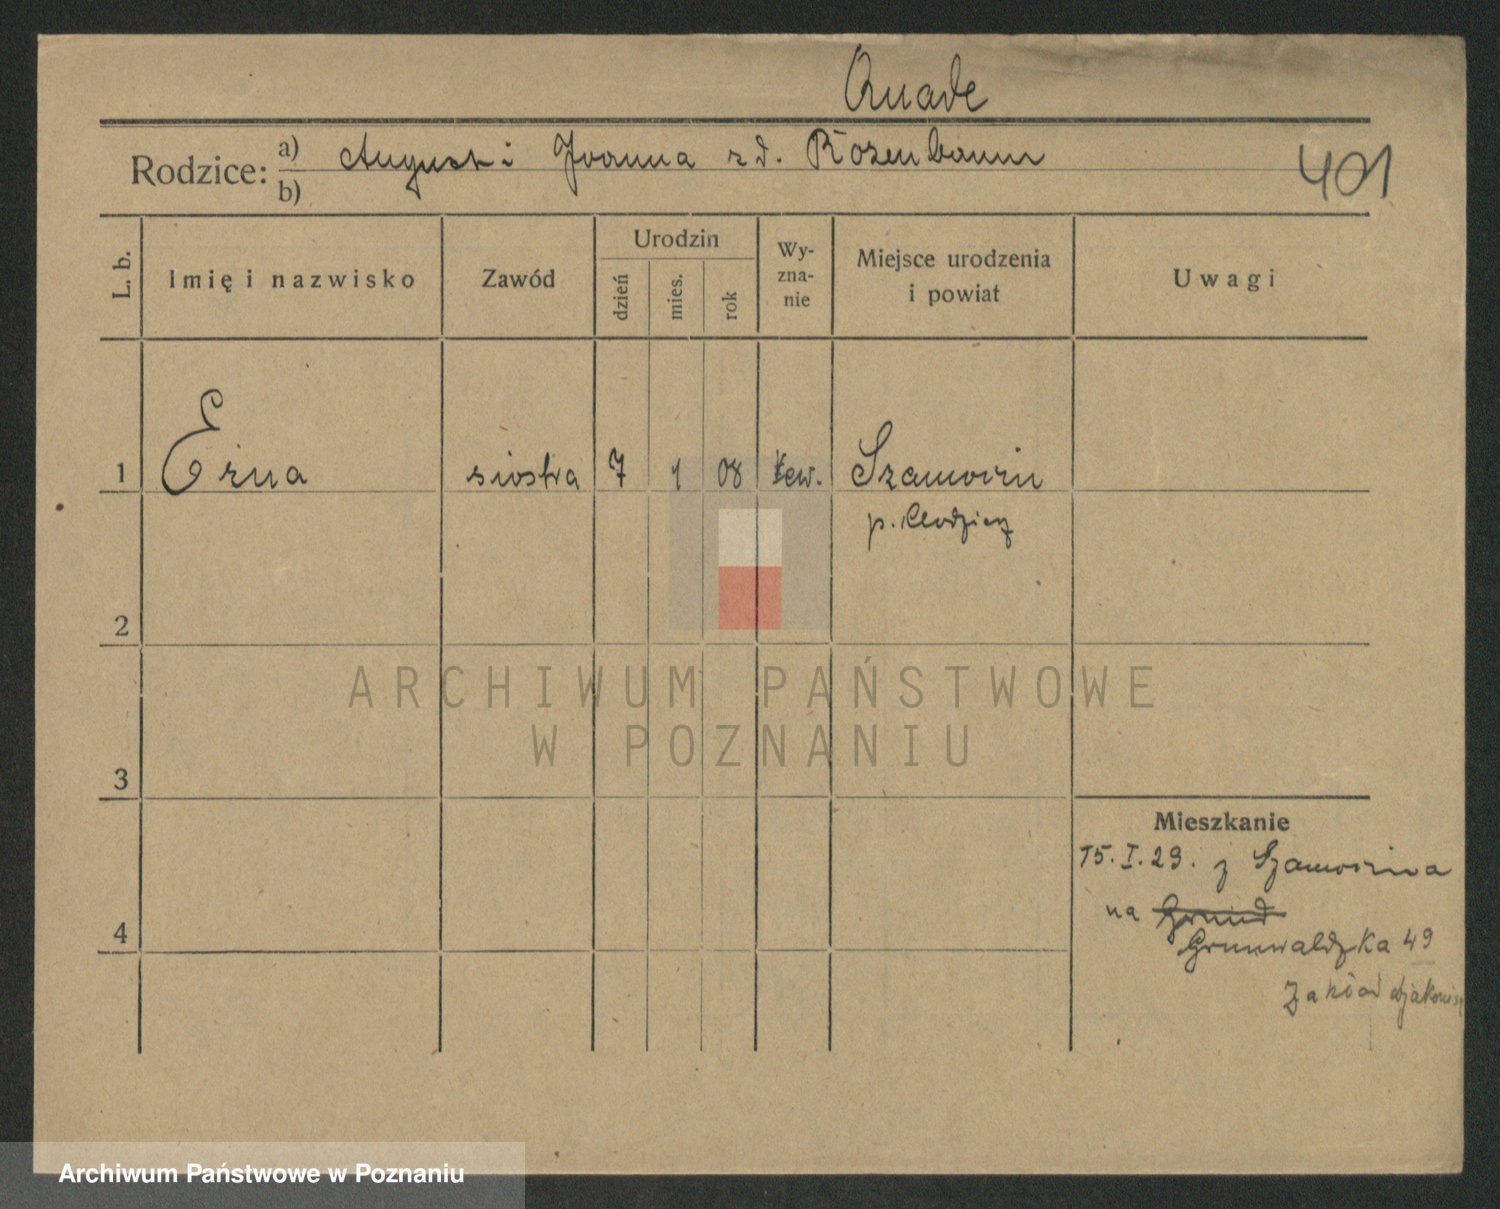 Quade
Rodzice: a) August i Joanna z d. Rozenbaum
b)
401
L. b. Imię i nazwisko Zawód Urodzin dzień mies. rok Wy-zna-nie Miejsce urodzenia i powiat Uwagi
1 Erna siostra 7 1 08 ew. Szamocin
p. Chodzież
2
ARCHIWUM PAŃSTWOWE
W POZNANIU
3
Mieszkanie
15. I. 29. z Szamocina
na
4
Grunwaldzka 49
Zakład
Archiwum Państwowe w Poznaniu